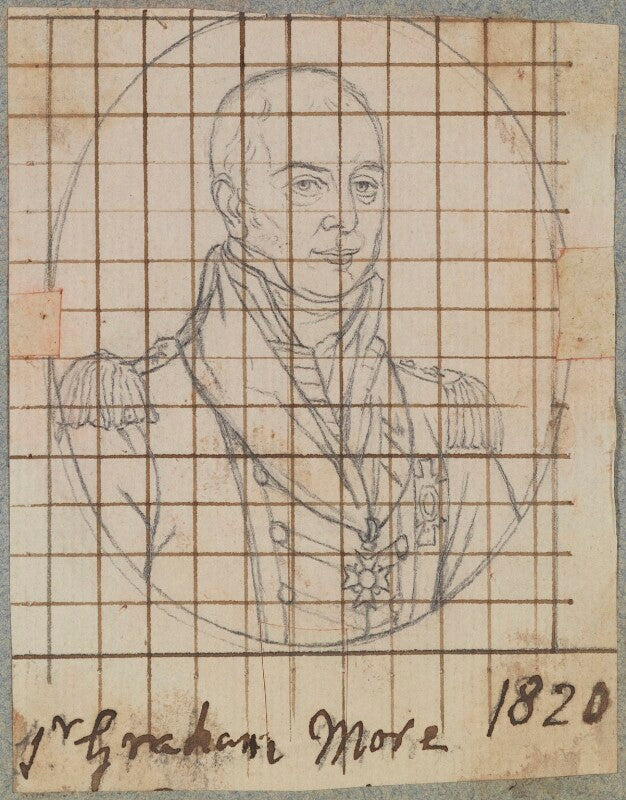 Sr Graham More 1820